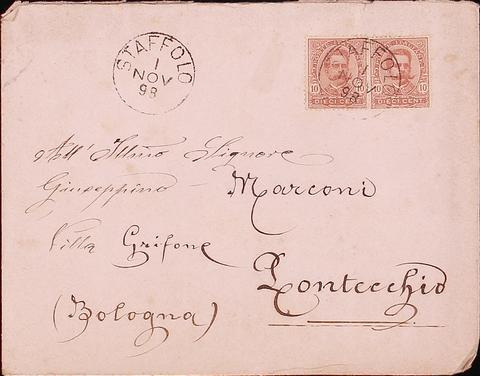 STAFFOLO
1
NOV
98
STAFFOLO
1
NOV
98
10 10
DIECI CENT.
10 10
DIECI CENT.
All' Illmo Signore
Giuseppino Marconi
Villa Grifone
Pontecchio
(Bologna)